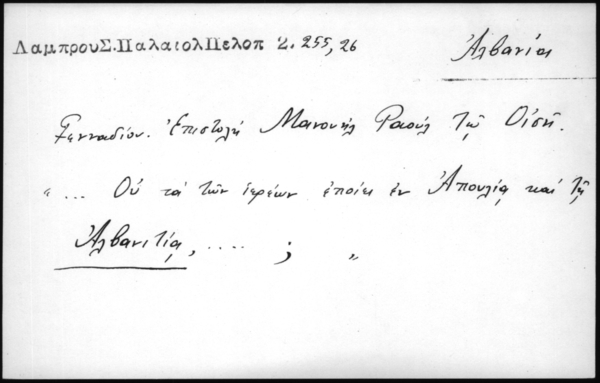 ΛαμπρουΣ.ΠαλαιολΠελοπ 2. 255,26
Ἀλβανία
Γενναδίου. Ἐπιστολὴ Μανουὴλ Ῥαοὺλ τῷ Οἰσῆ.
"... Οὐ τὰ τῶν ἱερέων ἐποίει ἐν Ἀπουλίᾳ καὶ τῇ
Ἀλβανιτίᾳ, ..... ; "